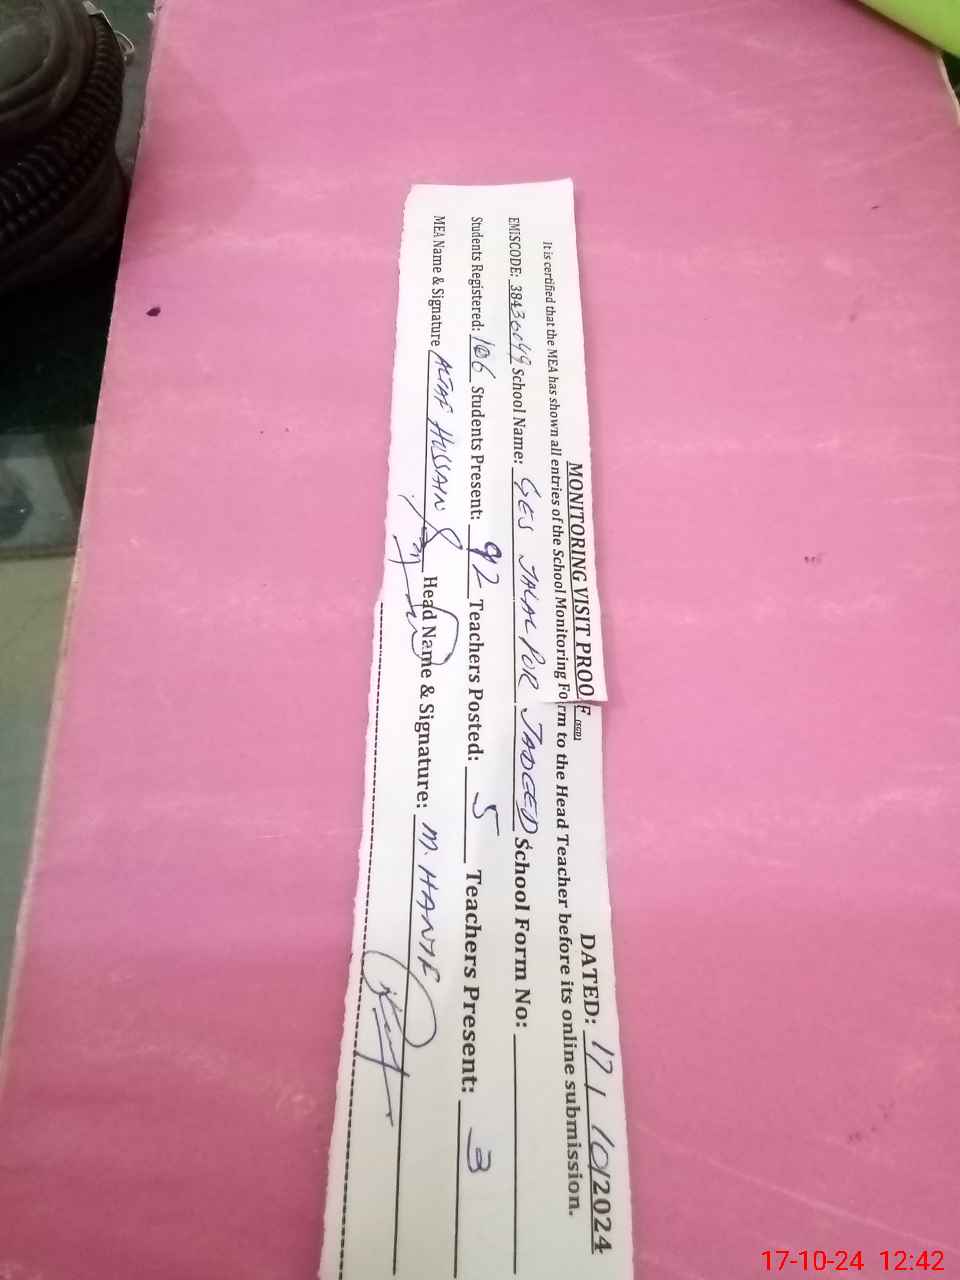 MONITORING VISIT PROOF (SGD) DATED: 17/10/2024
It is certified that the MEA has shown all entries of the School Monitoring Form to the Head Teacher before its online submission.
EMISCODE: 38436049 School Name: GES JALAL POR JADEED School Form No:
Students Registered: 106 Students Present: 92 Teachers Posted: 5 Teachers Present: 3
MEA Name & Signature ALTAF HUSSAIN Head Name & Signature: M. HANIF
17-10-24 12:42